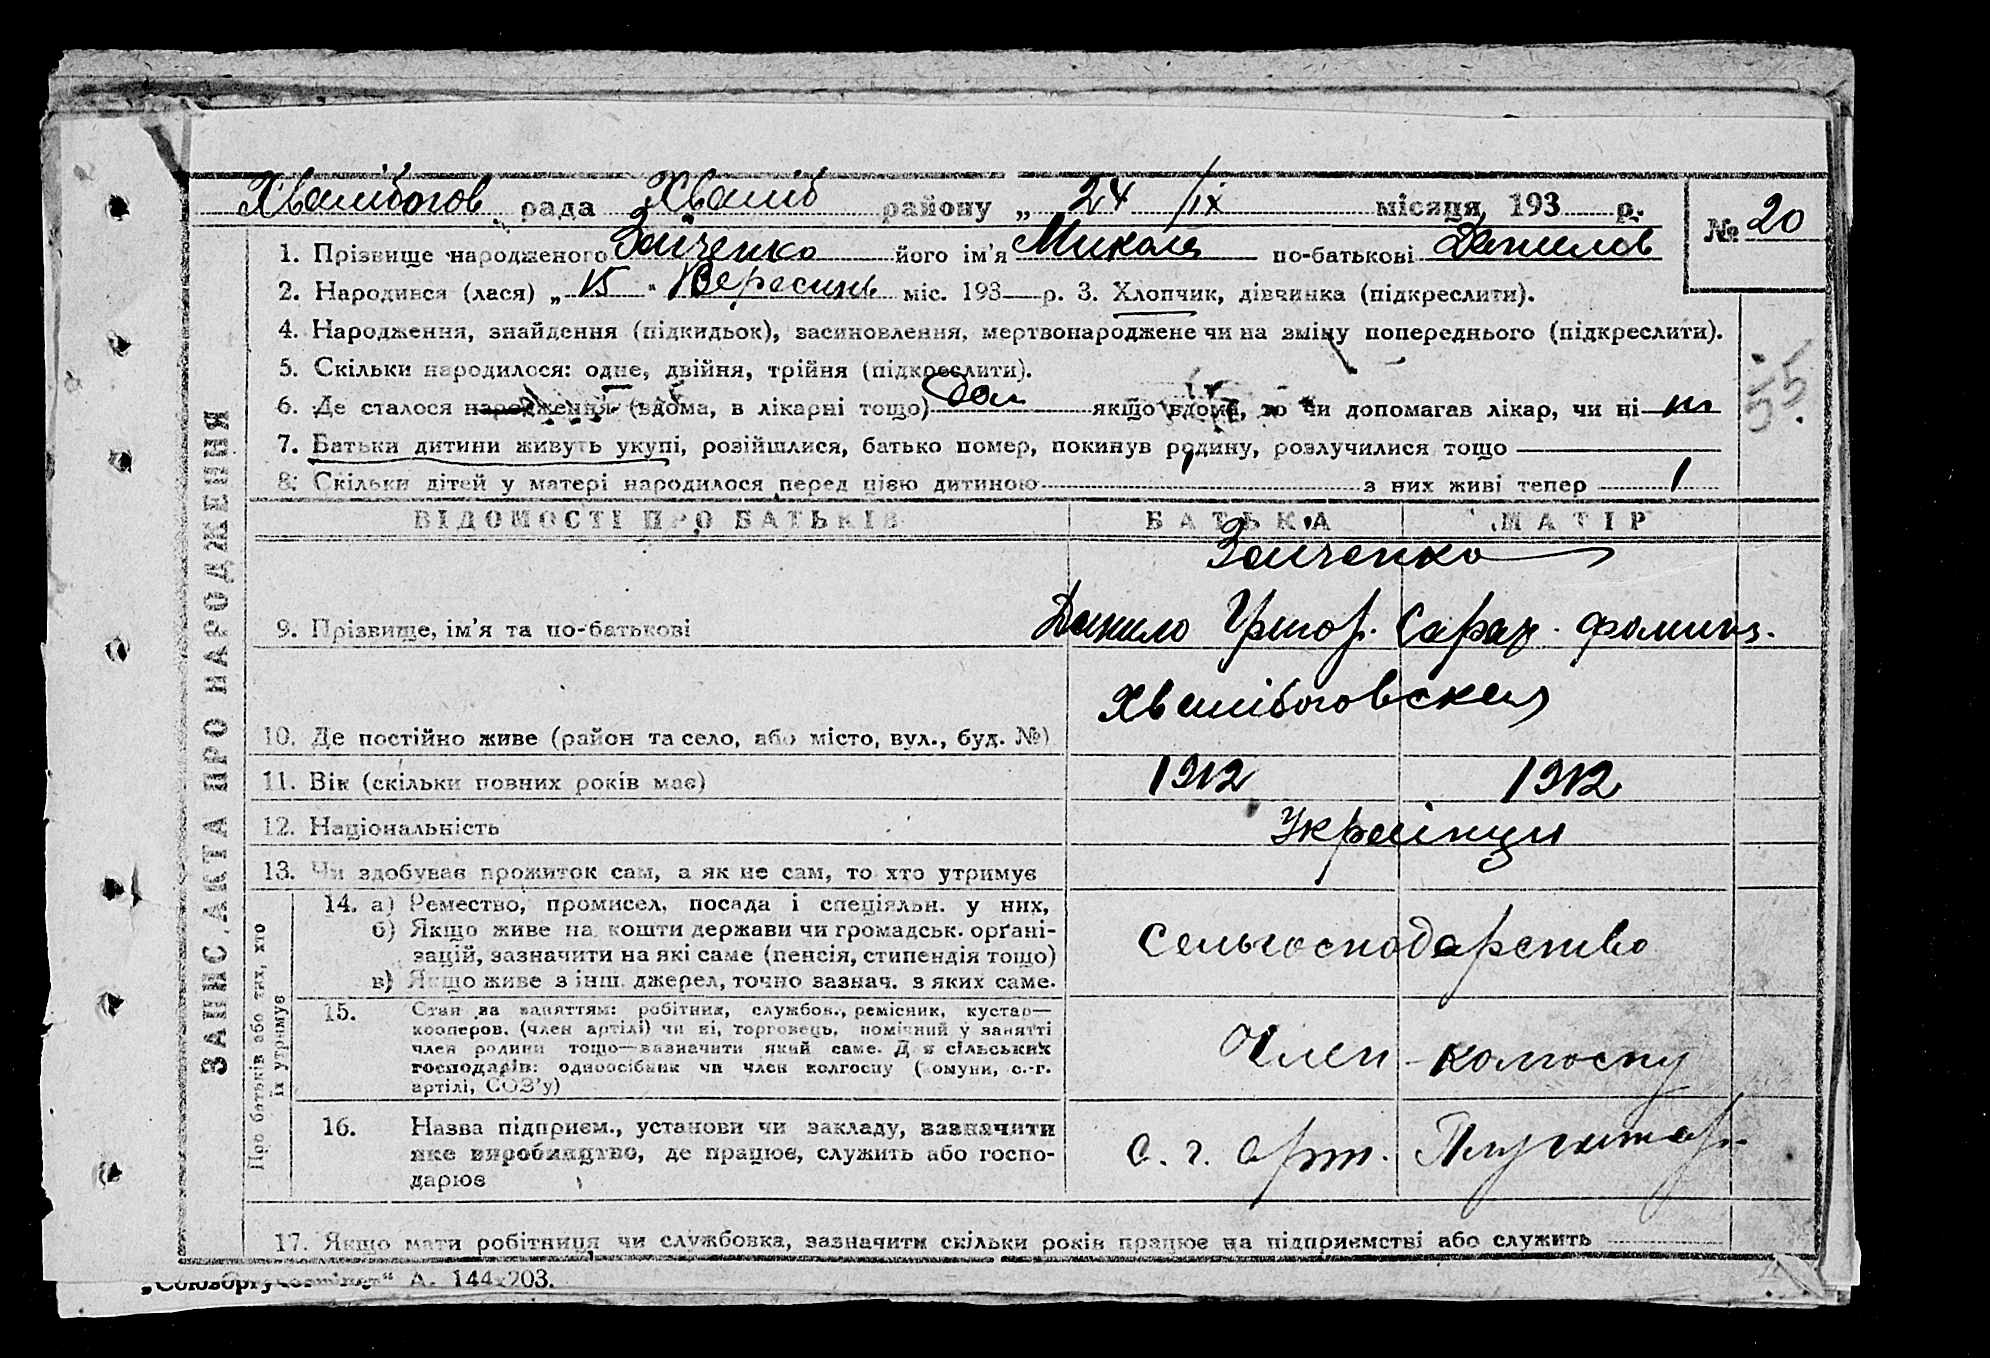 Хвалибогов рада Хваліб району „ 24 /ІХ місяця, 193 р.
№ 20
1. Прізвище народженого Заїченко його ім'я Микола по-батькові Данилов
2. Народився (лася) „ 15 " Вересинь міс. 193 р. 3. Хлопчик, дівчинка (підкреслити).
4. Народження, знайдення (підкидьок), засиновлення, мертвонароджене чи на зміну попереднього (підкреслити).
5. Скільки народилося: одне, двійня, трійня (підкреслити).
6. Де сталося народження (вдома, в лікарні тощо) якщо вдома, то чи допомагав лікар, чи ні ні
55.
7. Батьки дитини живуть укупі, розійшлися, батько помер, покинув родину, розлучилися тощо
8. Скільки дітей у матері народилося перед цією дитиною 1 з них живі тепер 1
ВІДОМОСТІ ПРО БАТЬКІВ БАТЬКА МАТІР
Заіченко
9. Прізвище, ім'я та по-батькові Данило Григор. Сараф. Фомин.
10. Де постійно живе (район та село, або місто, вул., буд. №) Хвалібоговская
11. Вік (скільки повних років має) 1912 1912
12. Національність Українци
13. Чи здобуває прожиток сам, а як не сам, то хто утримує
14. а) Ремество, промисел, посада і спеціяльн. у них,
б) Якщо живе на кошти держави чи громадськ. орґані-
зацій, зазначити на які саме (пенсія, стипендія тощо)
в) Якщо живе з інш. джерел, точно зазнач. з яких саме.
Сельгосподарство
15. Стан за заняттям: робітник, службов., ремісник, кустар—
кооперов. (член артілі) чи ні, торговець, помічний у занятті
член родини тощо—зазначити який саме. Для сільських
господарів: одноосібник чи член колгоспу (комуни, с.-г.
артілі, СОЗ'у)
Член колгоспу
16. Назва підприєм., установи чи закладу, зазначити
яке виробництво, де працює, служить або госпо-
дарює
с. г. арт.
17. Якщо мати робітниця чи службовка, зазначити скільки років працює на підприємстві або служить
ЗАПИС АКТА ПРО НАРОДЖЕННЯ
Про батьків або тих, хто
їх утримує
А. 144×203.